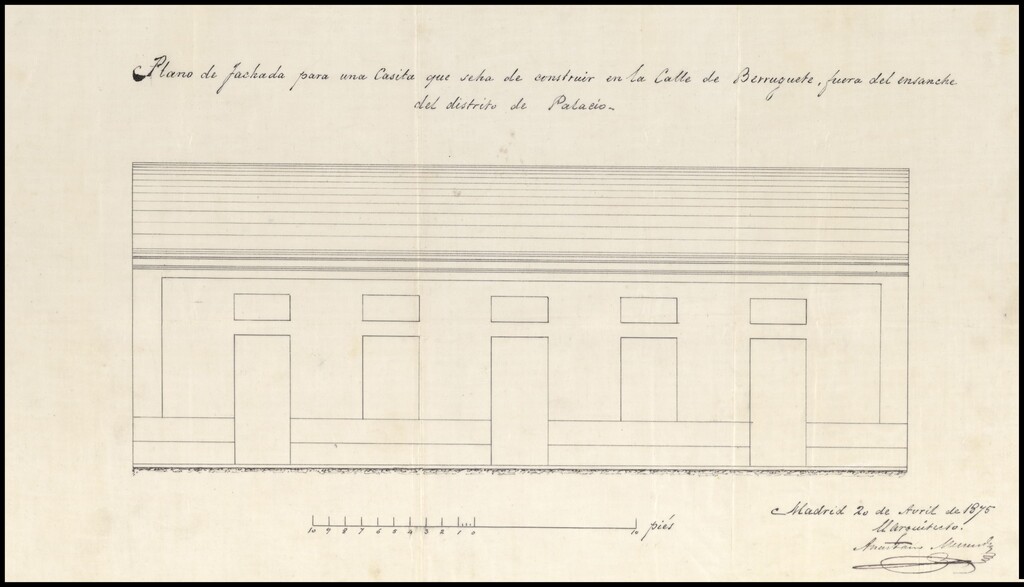 Plano de fachada para una Casita que seha de construir en la Calle de Berruguete, fuera del ensanche
del distrito de Palacio_
10 9 8 7 6 5 4 3 2 1 0 10 piés
Madrid 20 de Avril de 1875